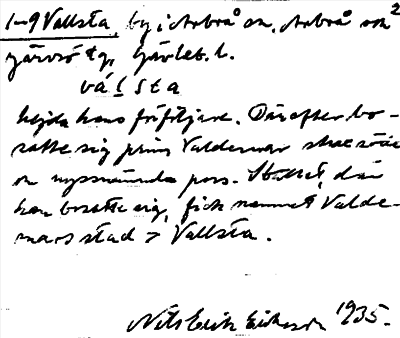 1-9 Vallsta, by i Arbrå sn, Arbrå och 2
Järvsö tg, Gävleb. l.
vá l s t a
hejda hans förföljare. Därefter bo-
satte sig prins Valdemar
nyssnämnda Stället, där
han bosatte sig, fick namnet Valde-
mars stad > Vallsta.
Nils Erik 1935.